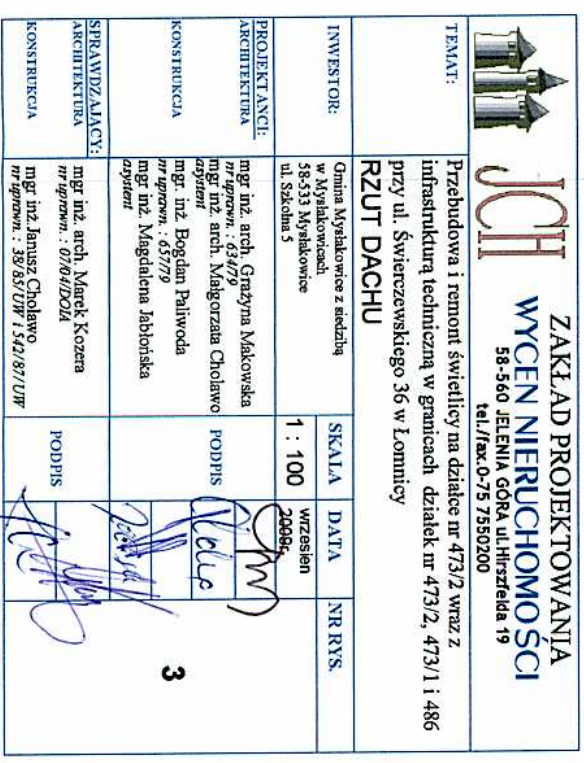 JCH
ZAKŁAD PROJEKTOWANIA
WYCEN NIERUCHOMOŚCI
58-560 JELENIA GÓRA ul.Hirszfelda 19
tel./fax.0-75 7550200
TEMAT:
Przebudowa i remont świetlicy na działce nr 473/2 wraz z
infrastrukturą techniczną w granicach działek nr 473/2, 473/1 i 486
przy ul. Świerczewskiego 36 w Łomnicy
RZUT DACHU
INWESTOR:
Gmina Mysłakowice z siedzibą
w Mysłakowicach
58-533 Mysłakowice
ul. Szkolna 5
SKALA
1 : 100
DATA
wrzesien
2008r.
NR RYS.
3
PROJEKTANCI:
ARCHITEKTURA
mgr inż. arch. Grażyna Makowska
nr uprawn. : 634/79
mgr inż. arch. Małgorzata Cholawo
asystent
KONSTRUKCJA
mgr. inż. Bogdan Paliwoda
nr uprawn. : 657/79
mgr inż. Magdalena Jabłońska
asystent
PODPIS
SPRAWDZAJĄCY:
ARCHITEKTURA
mgr inż. arch. Marek Kozera
nr uprawn. : 07/04/DOIA
KONSTRUKCJA
mgr inż.Janusz Cholawo
nr uprawn. : 38/85/UW i 542/87/UW
PODPIS